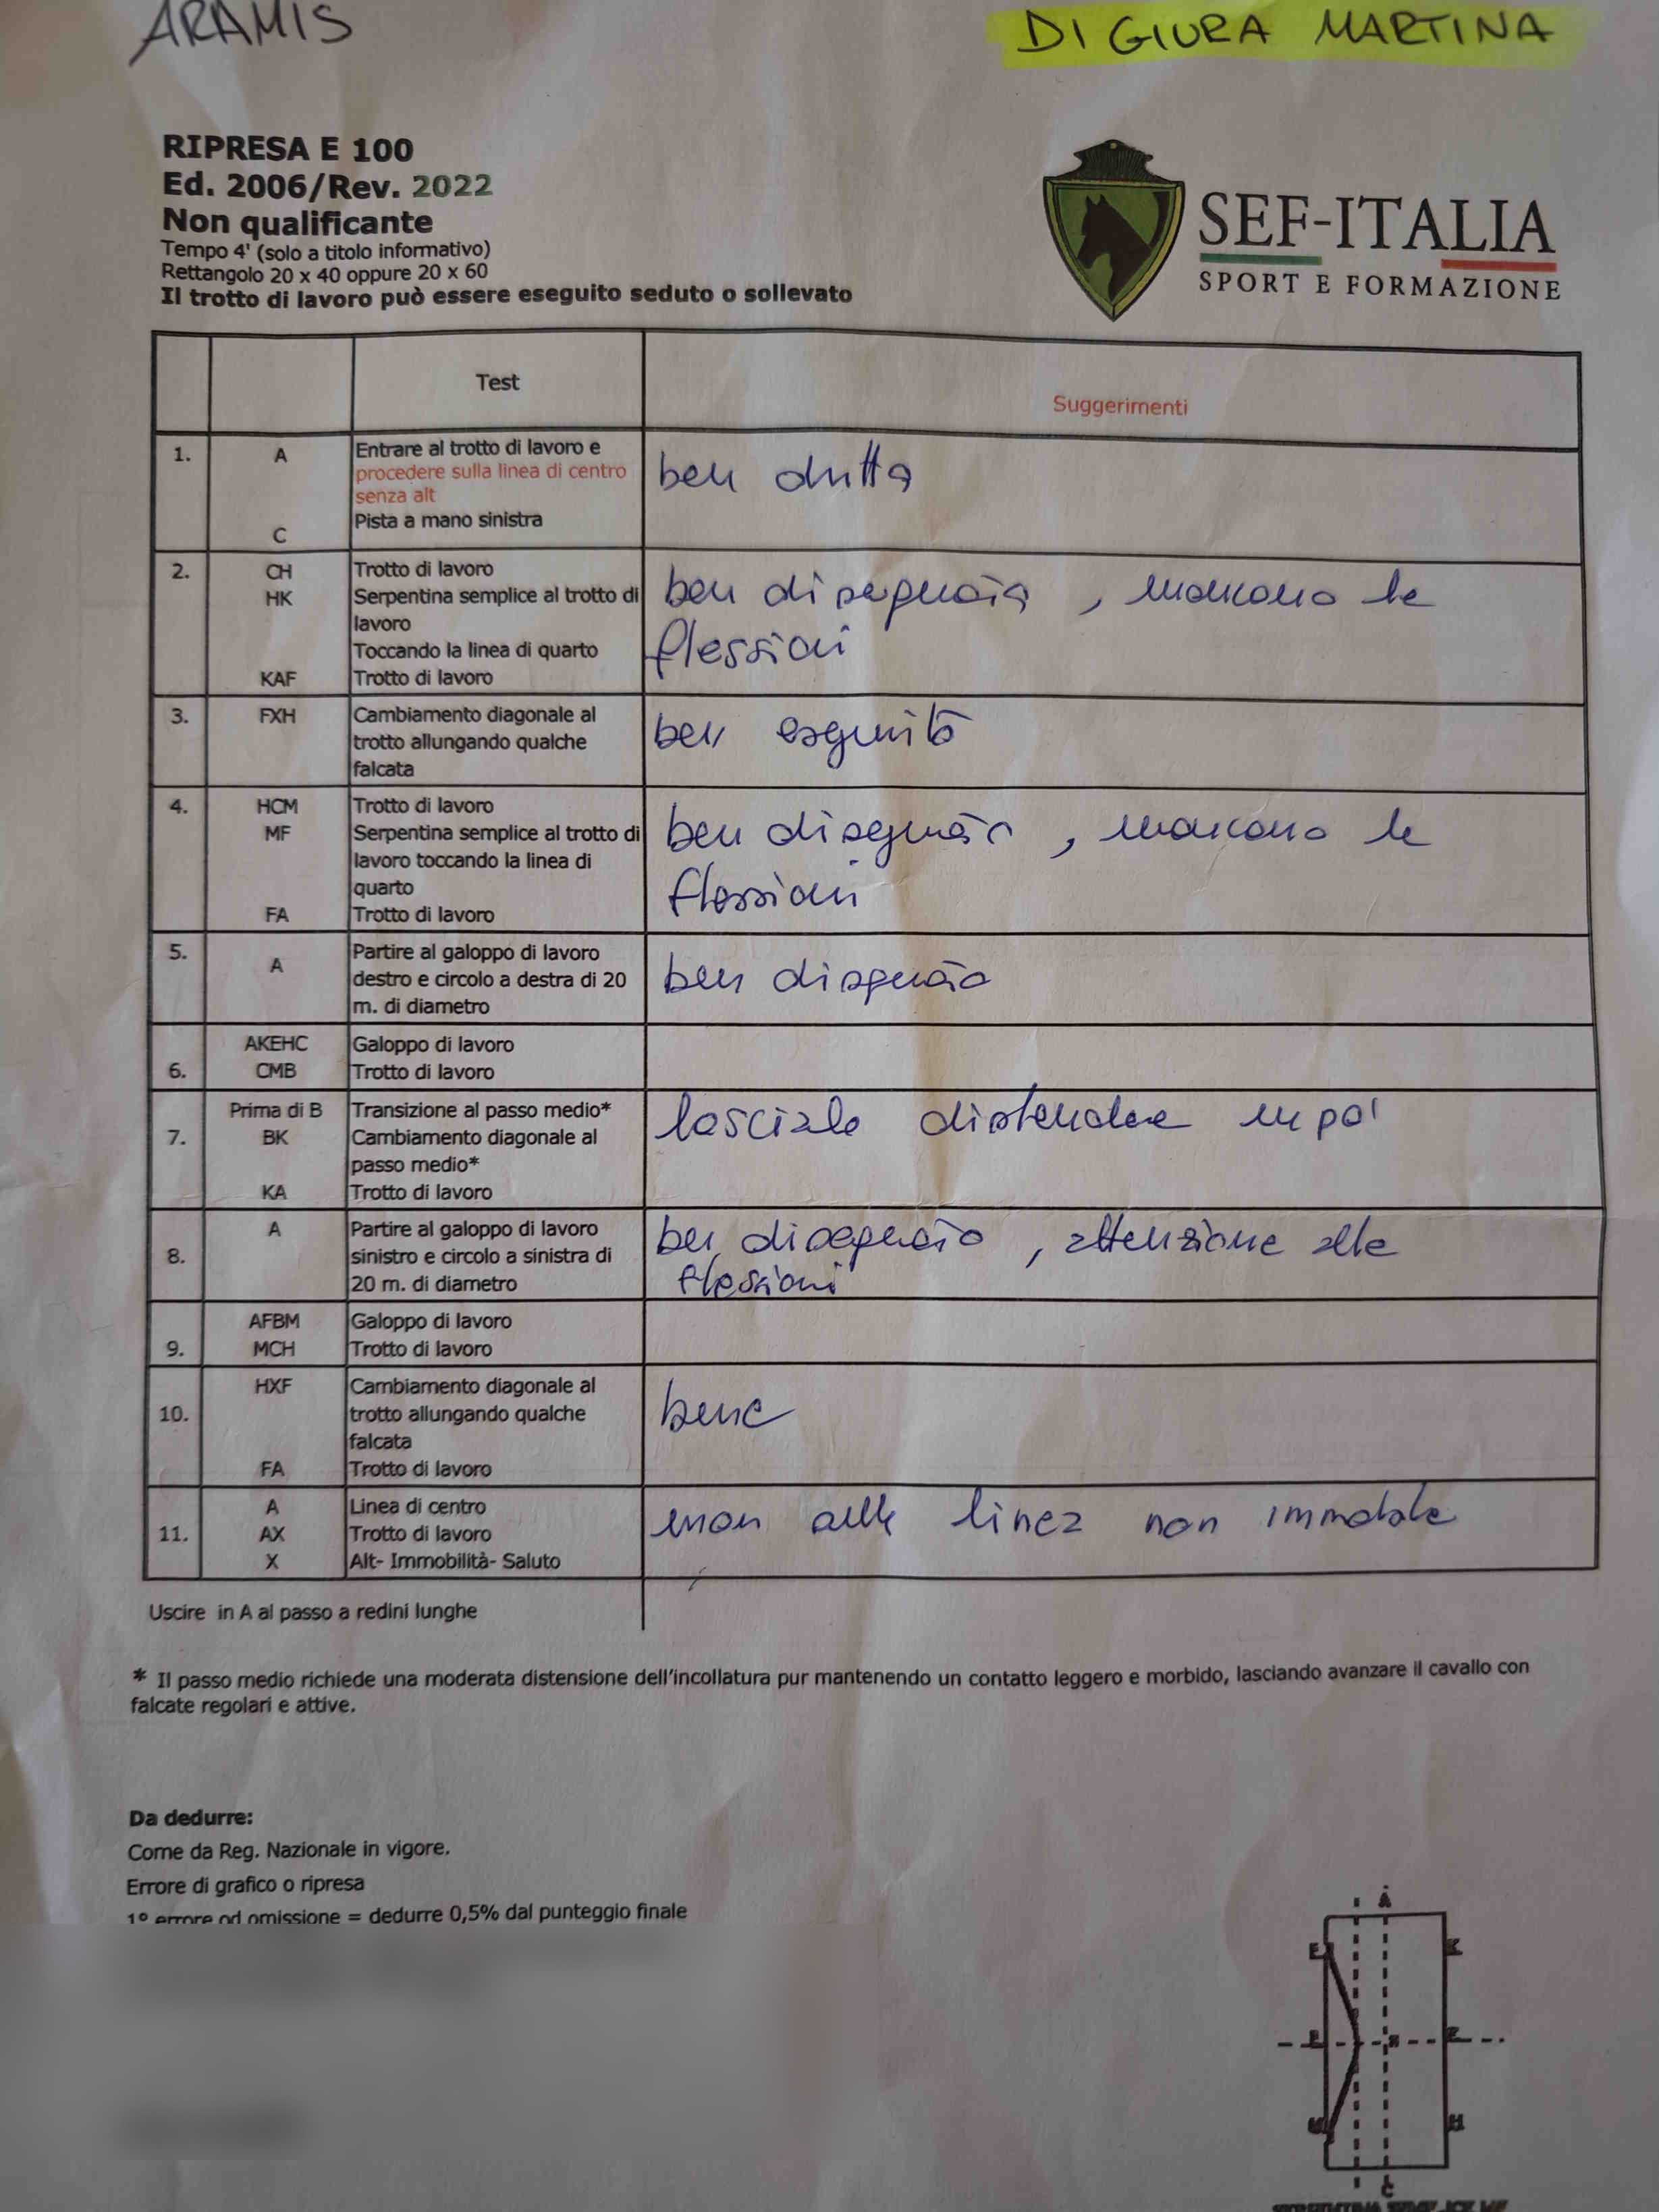 ARAMIS
DI GIURA MARTINA
RIPRESA E 100
Ed. 2006/Rev. 2022
Non qualificante
Tempo 4' (solo a titolo informativo)
Rettangolo 20 x 40 oppure 20 x 60
Il trotto di lavoro può essere eseguito seduto o sollevato
SEF-ITALIA
SPORT E FORMAZIONE
Test
Suggerimenti
1. A Entrare al trotto di lavoro e
procedere sulla linea di centro
senza alt
C Pista a mano sinistra
ben dritta
2. CH Trotto di lavoro
HK Serpentina semplice al trotto di
lavoro
Toccando la linea di quarto
KAF Trotto di lavoro
ben disegnata, mancano le
flessioni
3. FXH Cambiamento diagonale al
trotto allungando qualche
falcata
ben eseguito
4. HCM Trotto di lavoro
MF Serpentina semplice al trotto di
lavoro toccando la linea di
quarto
FA Trotto di lavoro
ben disegnata, mancano le
flessioni
5. A Partire al galoppo di lavoro
destro e circolo a destra di 20
m. di diametro
ben disegnato
AKEHC Galoppo di lavoro
6. CMB Trotto di lavoro
Prima di B Transizione al passo medio*
7. BK Cambiamento diagonale al
passo medio*
KA Trotto di lavoro
lasciale distendere un po'
A Partire al galoppo di lavoro
8. sinistro e circolo a sinistra di
20 m. di diametro
ben disegnato, attenzione alle
flessioni
AFBM Galoppo di lavoro
9. MCH Trotto di lavoro
HXF Cambiamento diagonale al
10. trotto allungando qualche
falcata
FA Trotto di lavoro
bene
A Linea di centro
11. AX Trotto di lavoro
X Alt- Immobilità- Saluto
alla linea non immobile
Uscire in A al passo a redini lunghe
* Il passo medio richiede una moderata distensione dell'incollatura pur mantenendo un contatto leggero e morbido, lasciando avanzare il cavallo con
falcate regolari e attive.
Da dedurre:
Come da Reg. Nazionale in vigore.
Errore di grafico o ripresa
1° errore od omissione = dedurre 0,5% dal punteggio finale
A
F K
H
C